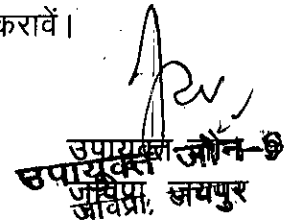 करावें।
उपायुक्त जोन-9
उपायुक्त जोन-9
जविप्रा, जयपुर
जविप्रा,